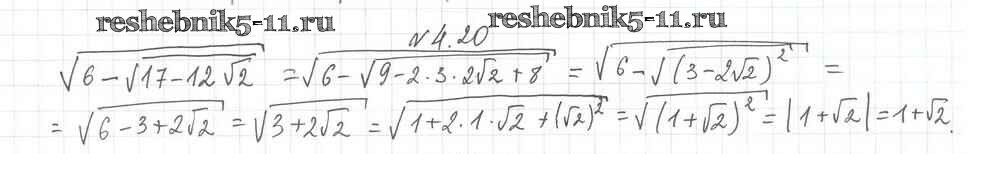 reshebnik5-11.ru reshebnik5-11.ru
№ 4.20
√(6 − √(17−12√2)) = √(6 − √(9−2·3·2√2+8)) = √(6 − √((3−2√2)²)) =
= √(6−3+2√2) = √(3+2√2) = √(1+2·1·√2+(√2)²) = √((1+√2)²) = |1+√2| = 1+√2.